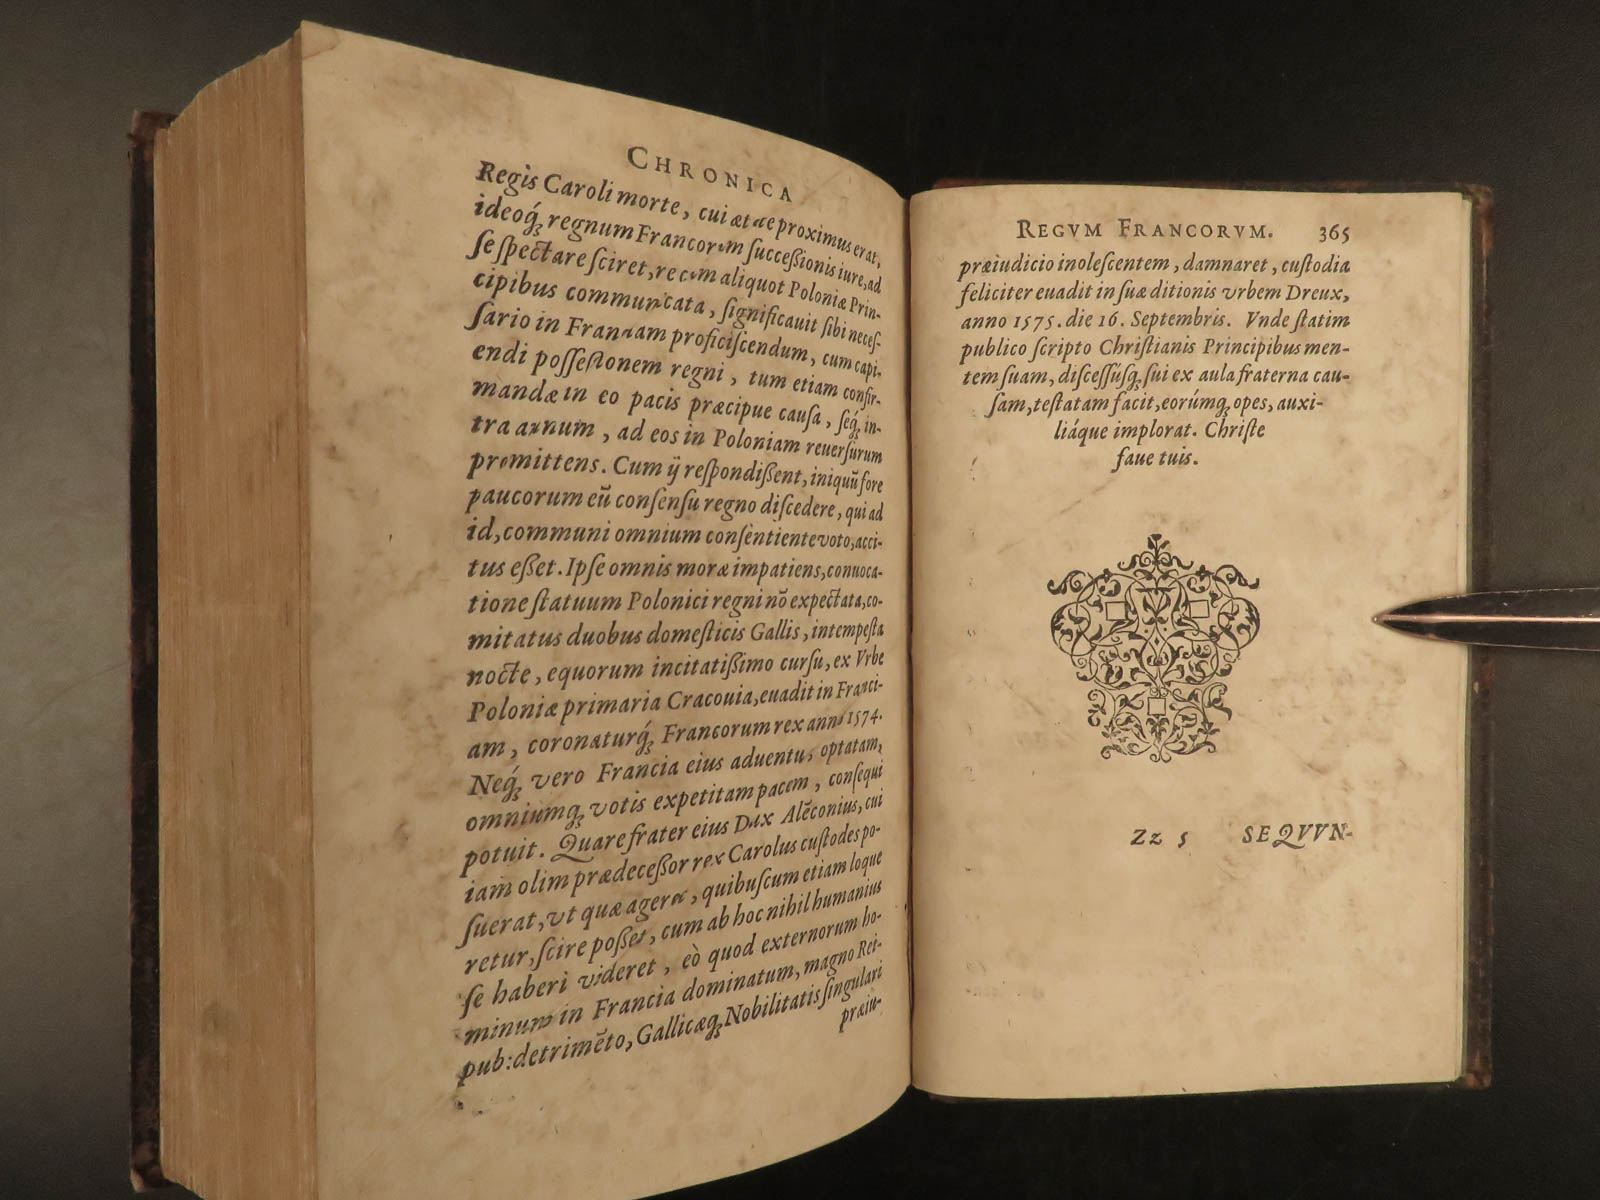 CHRONICA
Regis Caroli morte, cui ætate proximus erat,
ideoq́; regnum Francorum ſucceßionis iure, ad
ſe ſpectare ſciret, re cum aliquot Poloniæ Prin-
cipibus communicata, ſignificauit ſibi neceſ-
ſario in Franciam proficiſcendum, cum capi-
endi poſſeſsionem regni, tum etiam confir-
mandæ in eo pacis præcipue cauſa, ſeq́; in-
tra annum, ad eos in Poloniam reuerſurum
promittens. Cum ij reſpondißent, iniquũ fore
paucorum eũ conſenſu regno diſcedere, qui ad
id, communi omnium conſentiente voto, acci-
tus eßet. Ipſe omnis moræ impatiens, conuoca-
tione ſtatuum Polonici regni nō expectata, co-
mitatus duobus domeſticis Gallis, intempeſta
nocte, equorum incitatißimo curſu, ex Vrbe
Poloniæ primaria Cracouia, euadit in Franci-
am, coronaturq́; Francorum rex anno 1574.
Neq́; vero Francia eius aduentu, optatam,
omniumq́; votis expetitam pacem, conſequi
potuit. Quare frater eius Dux Alēconius, cui
iam olim prædeceßor rex Carolus cuſtodes po-
ſuerat, vt quæ ageret, quibuſcum etiam loque
retur, ſcire poßet, cum ab hoc nihil humanius
ſe haberi videret, eò quod externorum ho-
minum in Francia dominatum, magno Rei-
pub: detrimēto, Gallicæq́; Nobilitatis ſingulari
præiu-
REGVM FRANCORVM. 365
præiudicio inoleſcentem, damnaret, cuſtodia
feliciter euadit in ſuæ ditionis vrbem Dreux,
anno 1575. die 16. Septembris. Vnde ſtatim
publico ſcripto Chriſtianis Principibus men-
tem ſuam, diſceſſúsq́; ſui ex aula fraterna cau-
ſam, teſtatam facit, eorúmq́; opes, auxi-
liáque implorat. Chriſte
faue tuis.
Zz 5 SEQVVN-